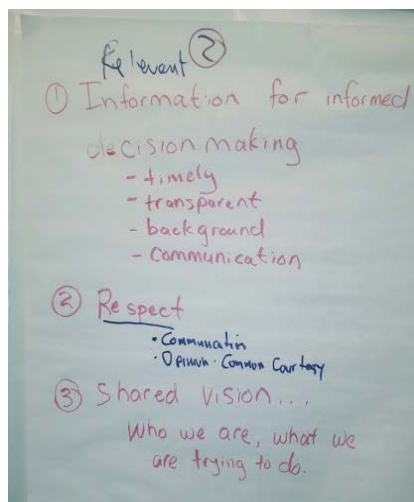 Relevant ②
① Information for informed
decision making
- timely
- transparent
- background
- communication
② Respect
• Communatin
• Opinion • Common Courtesy
③ Shared vision...
Who we are, what we
are trying to do.